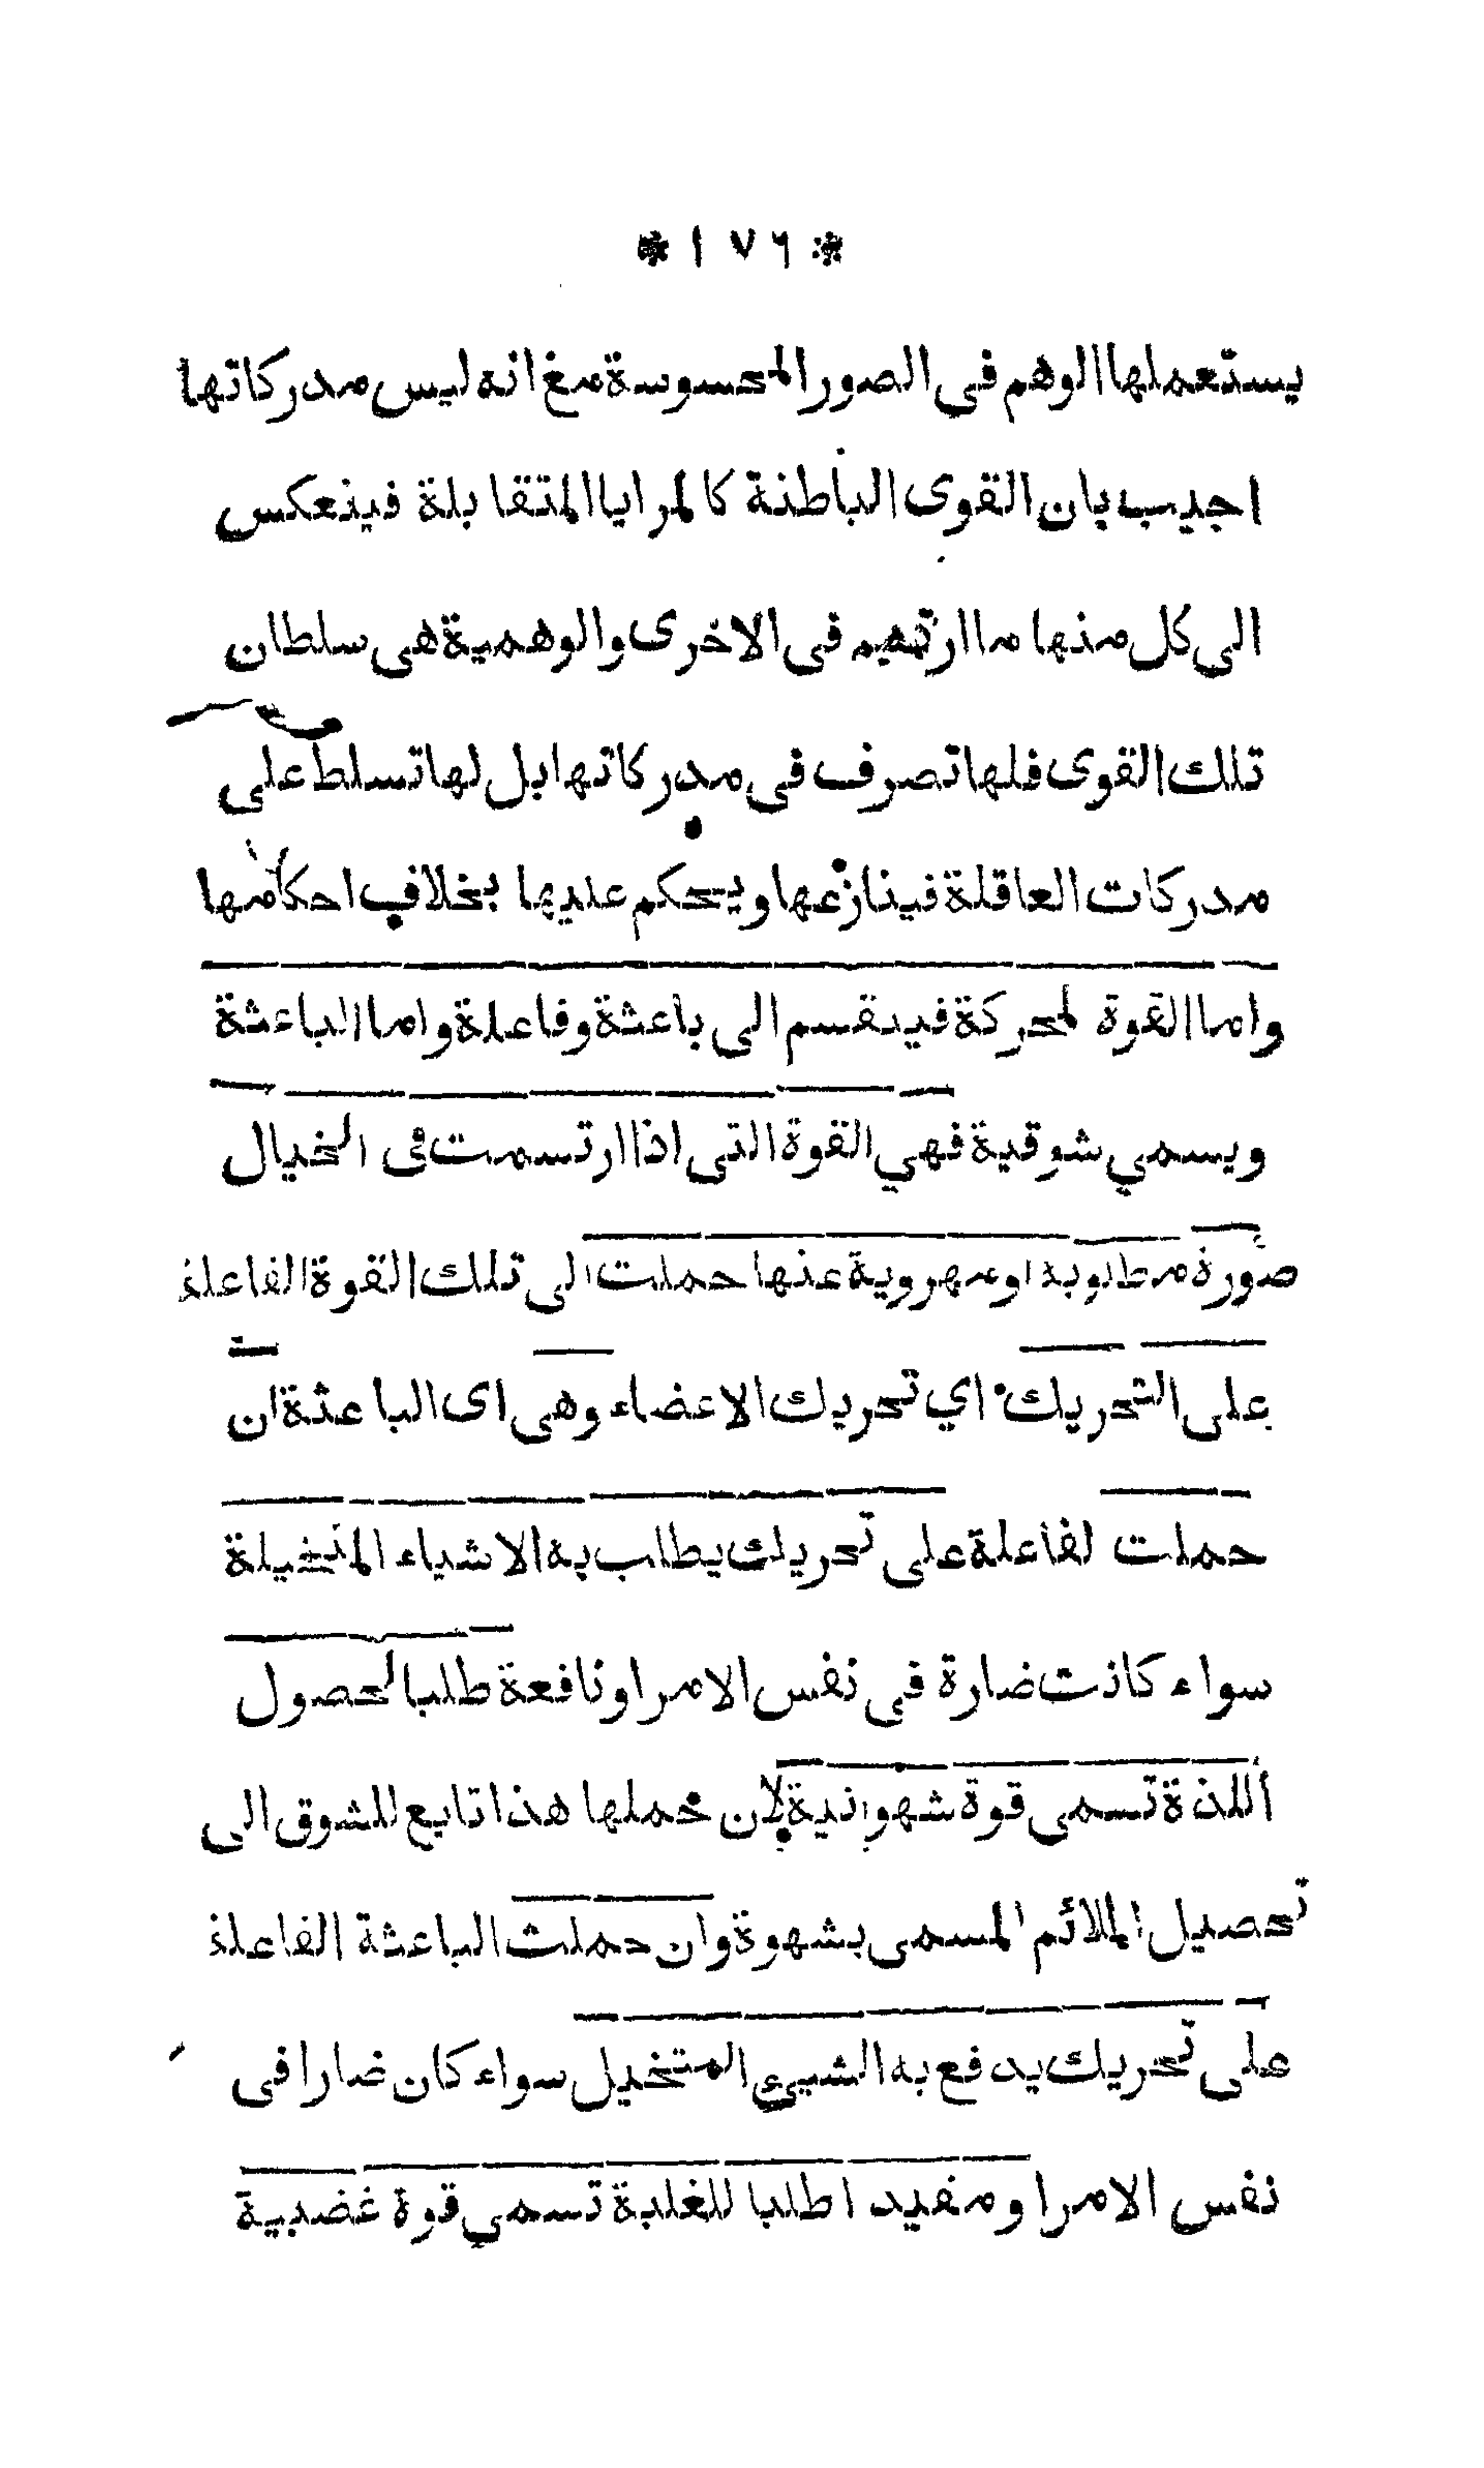 * ١٧٦ *
يستعملها الوهم فى الصور المحسوسة مع انه ليس مدركاتها
اجيب بان القوى الباطنة كالمرايا المتقابلة فينعكس
الى كل منها ما ارتسم فى الاخرى والوهمية هى سلطان
تلك القوى فلها تصرف فى مدركاتها بل لها تسلط على
مدركات العاقلة فينازعها ويحكم عليها بخلاف احكامها
واما القوة لمحركة فينقسم الى باعثة وفاعلة واما الباعثة
ويسمي شوقية فهي القوة التى اذا ارتسمت فى الخيال
صورة مطلوبة او مهروبة عنها حملت الى تلك القوة الفاعلة
على التحريك اي تحريك الاعضاء وهى اى الباعثة ان
حملت لفاعلة على تحريك يطلب به الاشياء المتخيلة
سواء كانت ضارة فى نفس الامر او نافعة طلبا لحصول
أللذة تسمى قوة شهوانية لان حملها هذا تابع للشوق الى
تحصيل الملائم المسمى بشهوة وان حملت الباعثة الفاعلة
على تحريك يدفع به الشيئ المتخيل سواء كان ضارا فى
نفس الامر او مفيدا طلبا للغلبة تسمي قوة غضبية